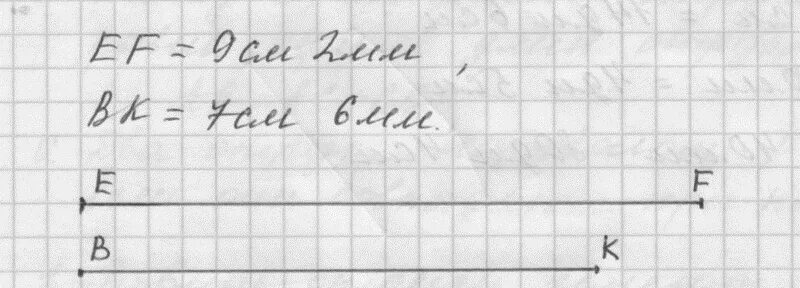 EF = 9см 2мм,
BK = 7см 6мм.
E F
B K